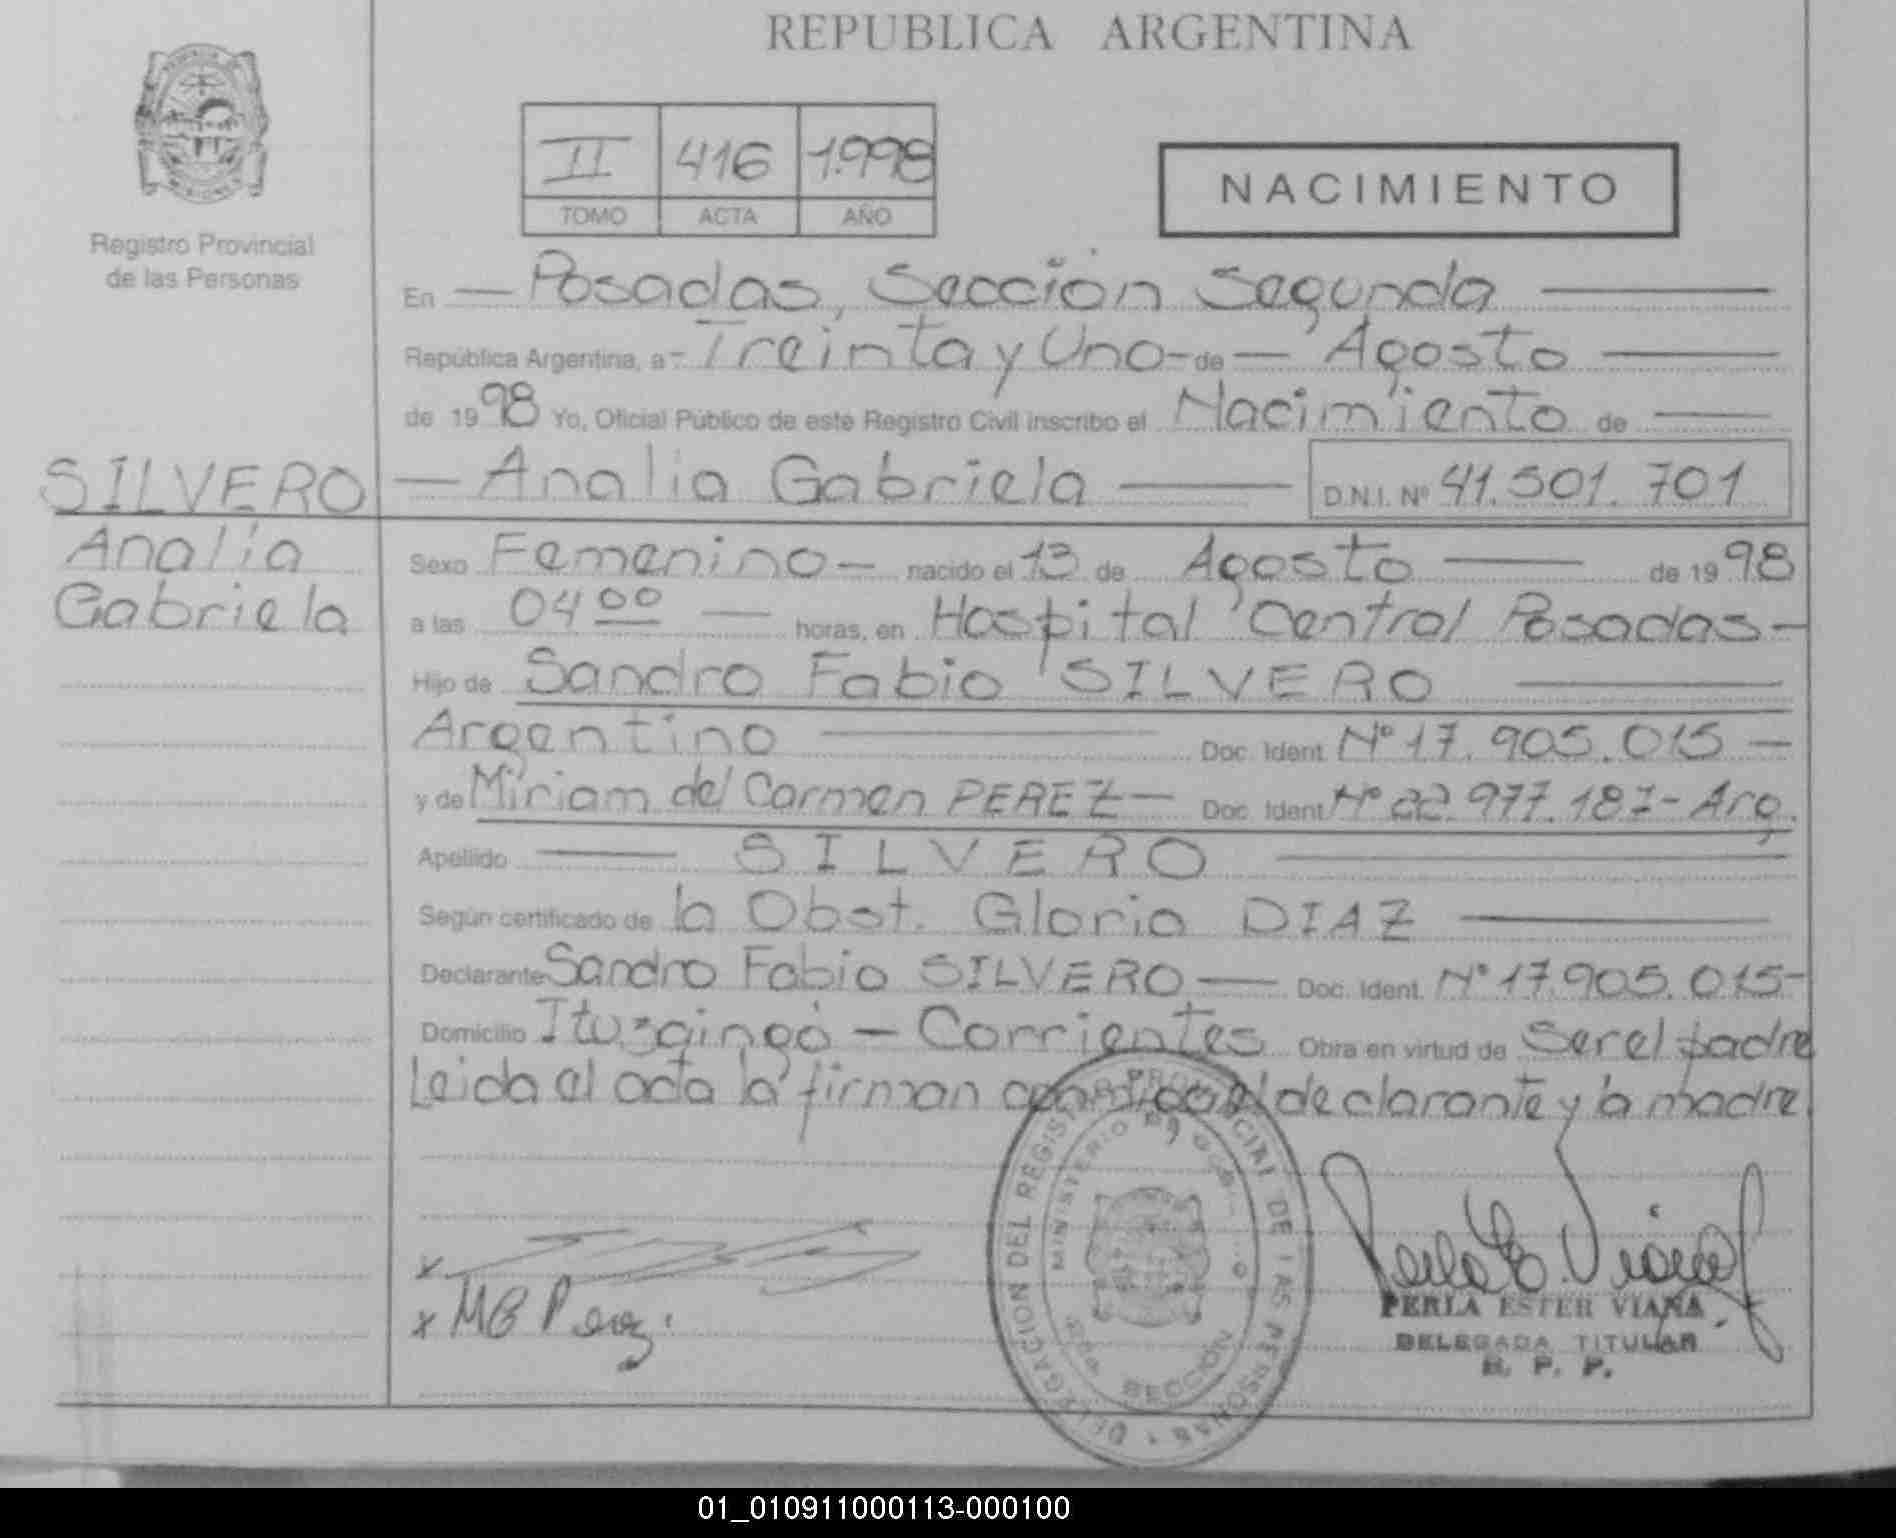 REPUBLICA ARGENTINA
II 416 1.998
TOMO ACTA AÑO
NACIMIENTO
Registro Provincial
de las Personas
En — Posadas, Sección Segunda —
República Argentina, a - Treinta y Uno - de — Agosto —
de 1998 Yo, Oficial Público de este Registro Civil inscribo el Nacimiento de —
SILVERO — Analia Gabriela — D.N.I. Nº 41.501.701
Analía
Gabriela
Sexo Femenino — nacido el 13 de Agosto — de 1998
a las 04 00 — horas, en Hospital Central Posadas -
Hijo de Sandro Fabio SILVERO —
Argentino — Doc. Ident. Nº 17.905.015 —
y de Miriam del Carmen PEREZ — Doc. Ident. Nº 22.977.187 - Arg.
Apellido — SILVERO —
Según certificado de la Obst. Gloria DIAZ —
Declarante Sandro Fabio SILVERO — Doc. Ident. Nº 17.905.015 -
Domicilio Ituzaingó — Corrientes Obra en virtud de Ser el padre
Leida el acta la firman conmigo el declarante y la madre.
DELEGACION DEL REGISTRO PROVINCIAL DE LAS PERSONAS
MINISTERIO DE
SECCIÓN
x
x MC Perez.
Perla E. Viana
PERLA ESTER VIANA
DELEGADA TITULAR
R. P. P.
01_010911000113-000100